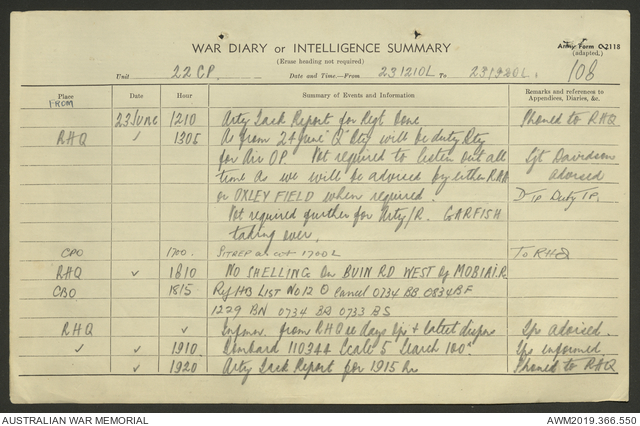 Army Form C2118
(adapted.)
WAR DIARY or INTELLIGENCE SUMMARY
(Erase heading not required)
108
Unit 22 CP. Date and Time—From 231210L To 231920L.
Place Date Hour Summary of Events and Information Remarks and references to Appendices, Diaries, &c.
FROM
23 June 1210 Arty Tack Report for Regt Done Phoned to RHQ
RHQ ✓ 1305 As from 24 June "Q" Bty will be duty Bty
for Air OP. Not required to listen out all Sgt Davidson
time as we will be advised by either RAA advised
or OXLEY FIELD when required. Duty
Not required further for Arty/R. GARFISH
taking over.
CPO 1700. SITREP as at 1700L To RHQ
RHQ ✓ 1810 NO SHELLING On BUIN RD WEST of MOBIAI.R
CBO 1815 Ref HB LIST No 12 Cancel 0734 BB 0834 BF
1229 BN 0734 BQ 0733 BS
RHQ ✓ from RHQ days + latest Ips advised.
✓ 1910. Bombard 110344 Scale 5 Search 100° Ips informed
✓ 1920 Arty Tack Report for 1915 hr Phoned to RHQ
AUSTRALIAN WAR MEMORIAL AWM2019.366.550